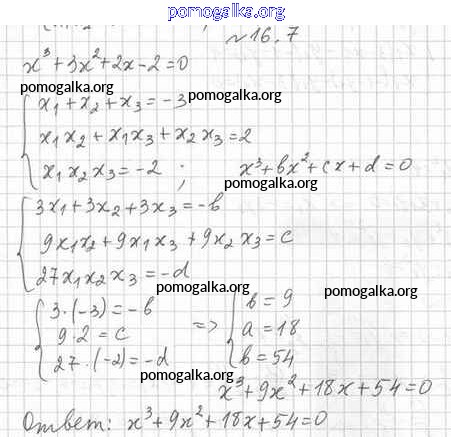 pomogalka.org
№16.7
x³+3x²+2x-2=0
pomogalka.org
pomogalka.org
x₁+x₂+x₃=-3
x₁x₂+x₁x₃+x₂x₃=2
x₁x₂x₃=-2 ; x³+bx²+cx+d=0
pomogalka.org
3x₁+3x₂+3x₃=-b
9x₁x₂+9x₁x₃+9x₂x₃=c
27x₁x₂x₃=-d
pomogalka.org
pomogalka.org
3·(-3)=-b
9·2=c
27·(-2)=-d
=> b=9
a=18
b=54
pomogalka.org
x³+9x²+18x+54=0
Ответ: x³+9x²+18x+54=0